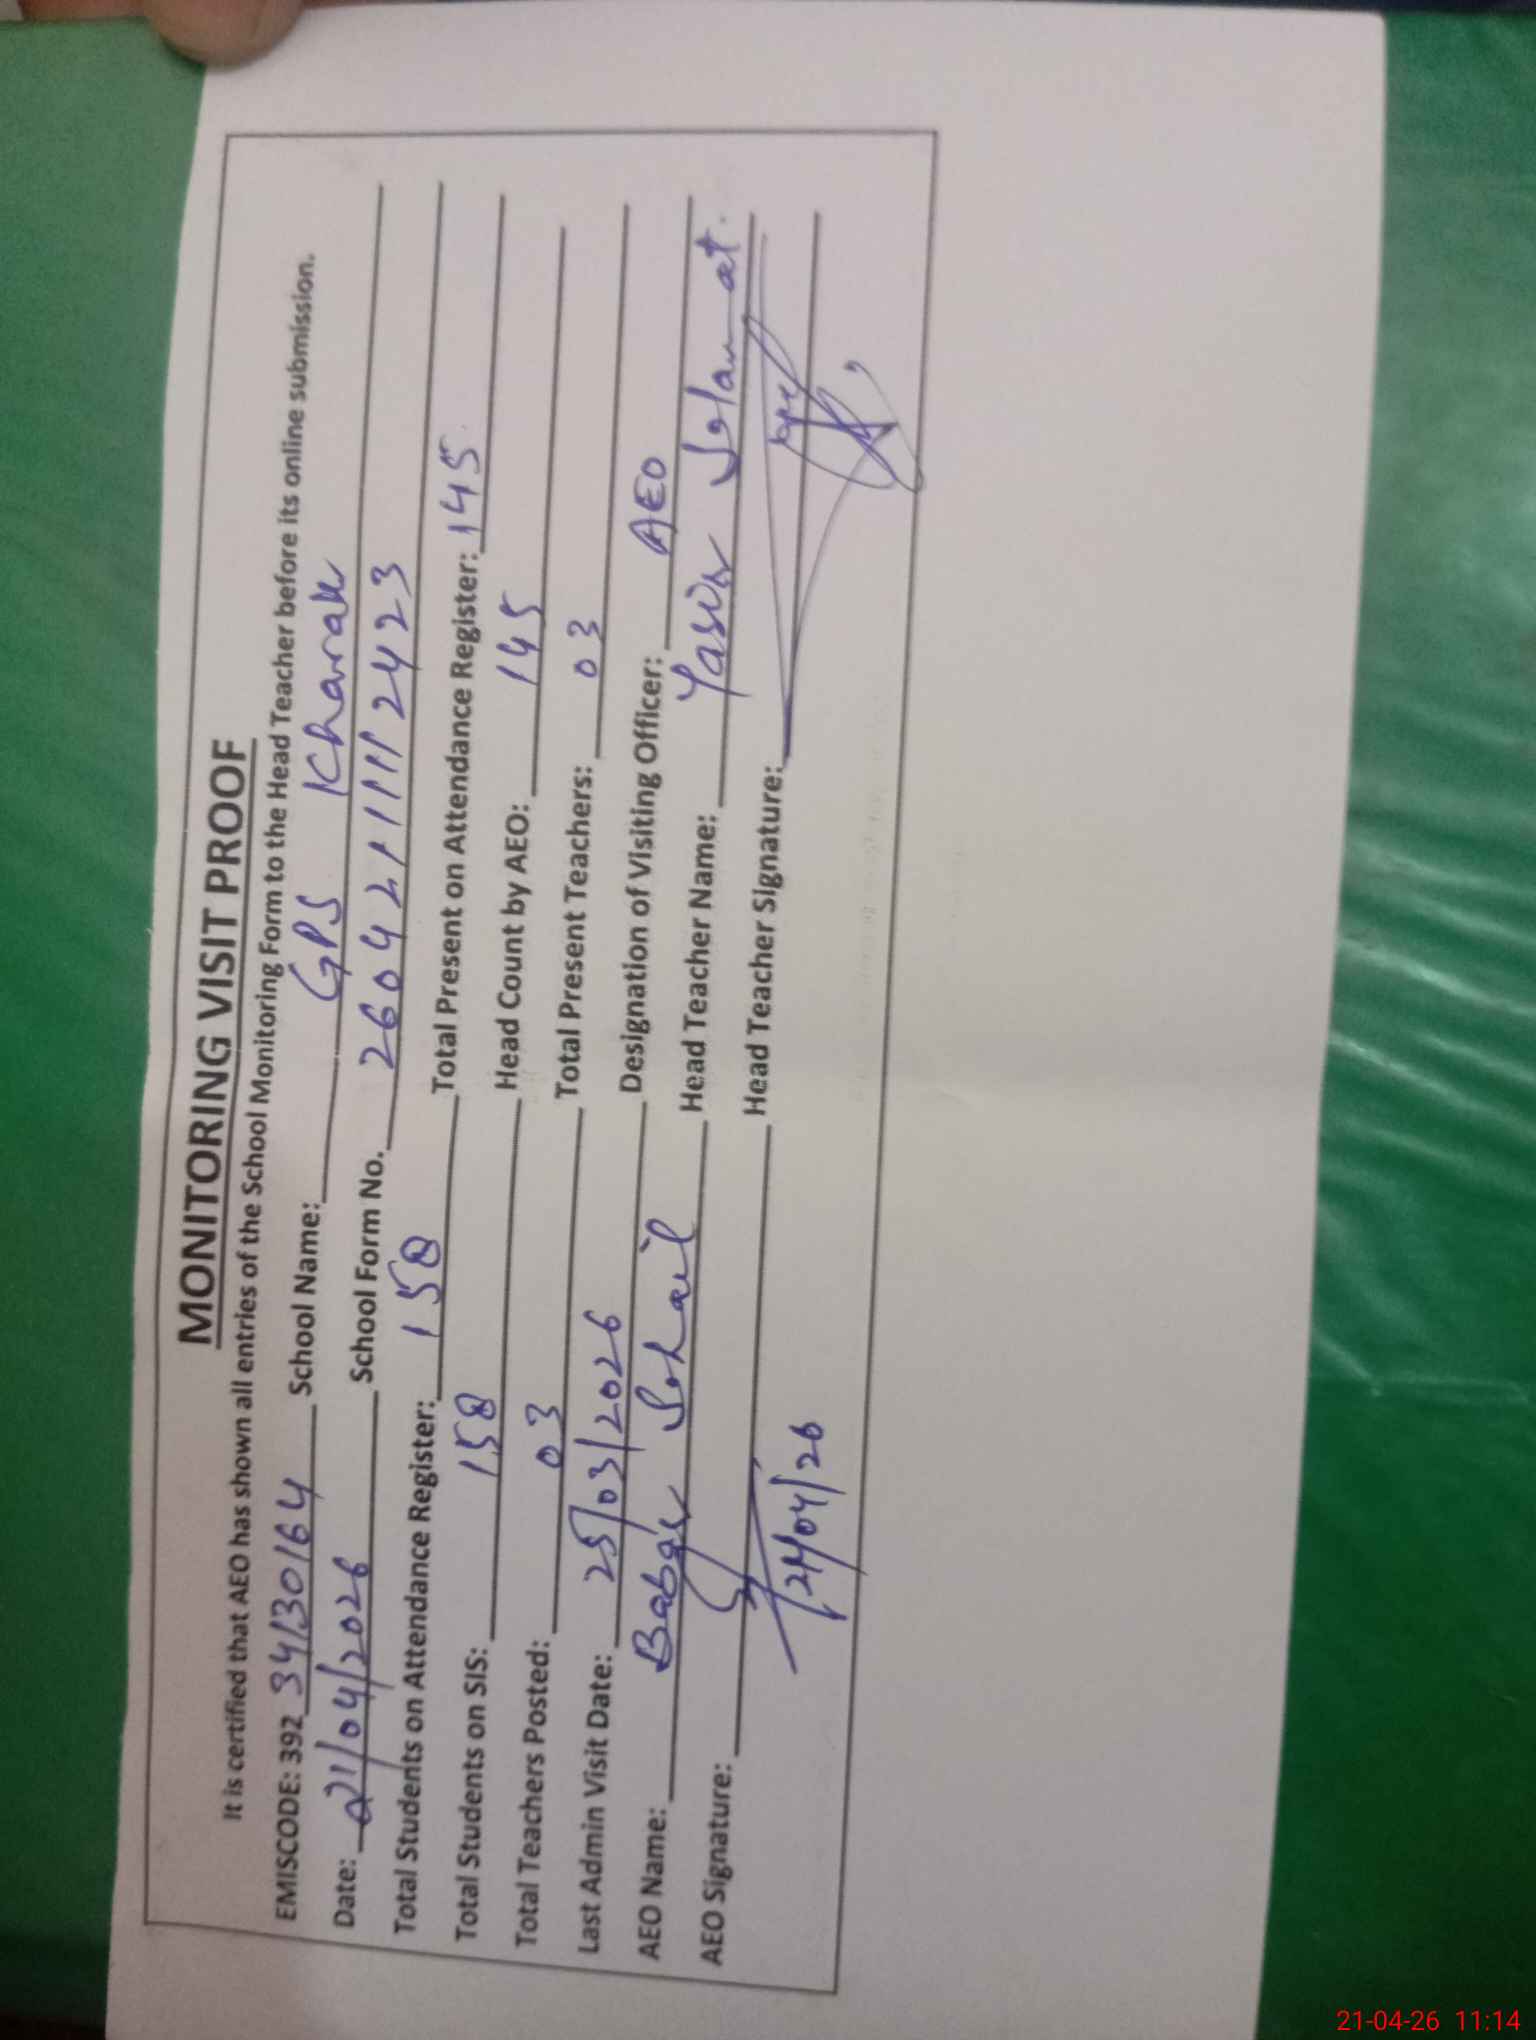 MONITORING VISIT PROOF
It is certified that AEO has shown all entries of the School Monitoring Form to the Head Teacher before its online submission.
EMISCODE: 392 34130164 School Name: GPS Kharak
Date: 21/04/2026 School Form No. 260421111112423
Total Students on Attendance Register: 158 Total Present on Attendance Register: 145
Total Students on SIS: 158 Head Count by AEO: 145
Total Teachers Posted: 03 Total Present Teachers: 03
Last Admin Visit Date: 25/03/2026 Designation of Visiting Officer: AEO
AEO Name: Babar Sohail Head Teacher Name: Yasir Salamat.
AEO Signature: Head Teacher Signature:
21/04/26
21-04-26 11:14